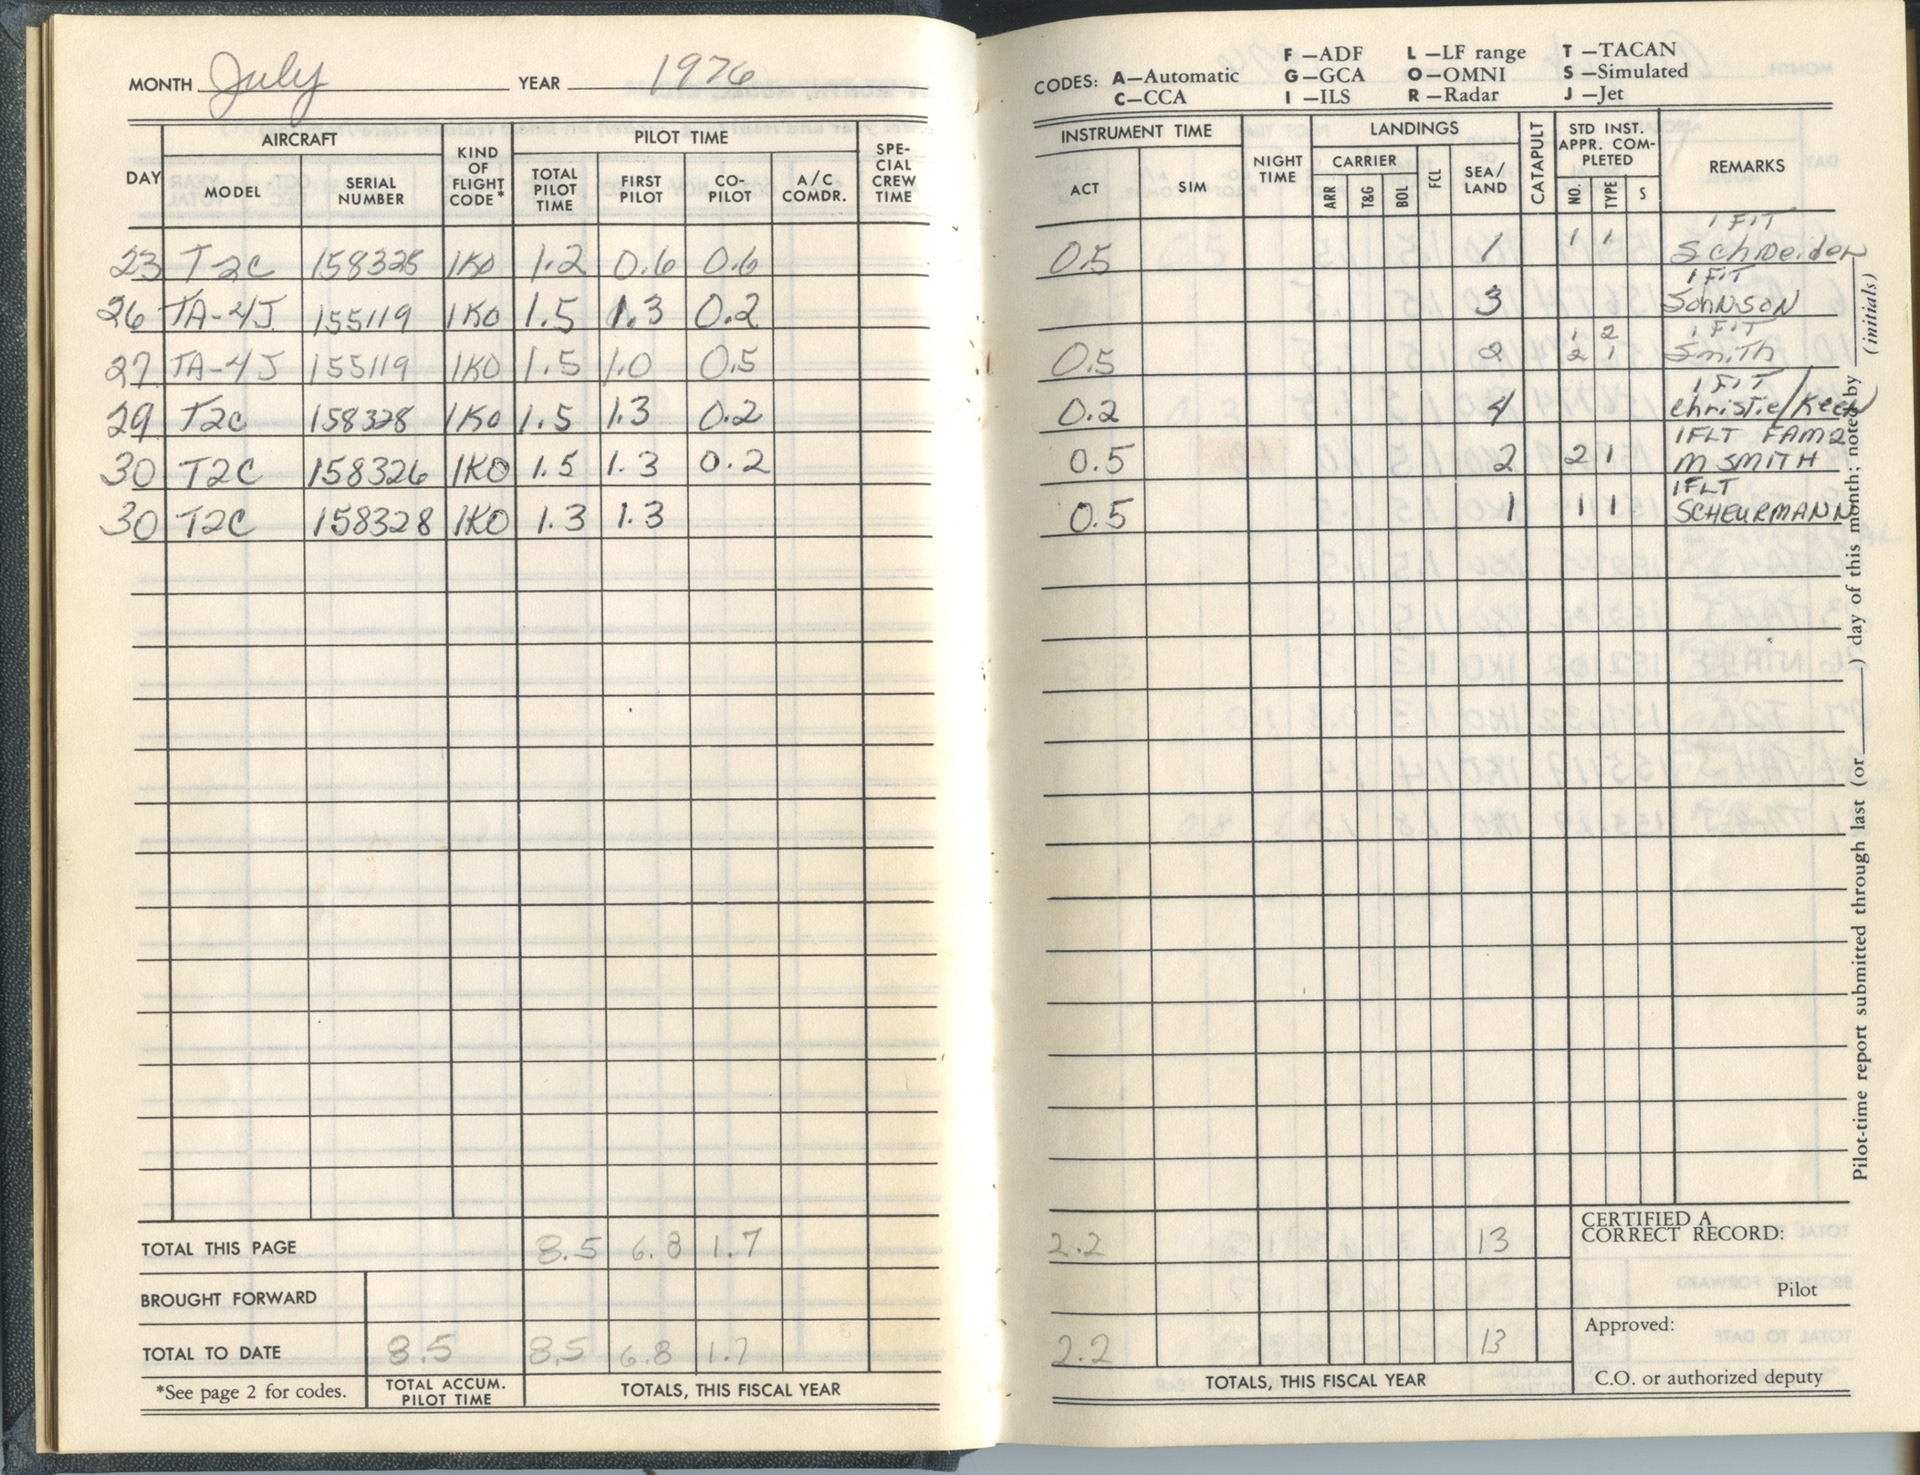 MONTH July YEAR 1976
AIRCRAFT PILOT TIME
DAY MODEL SERIAL NUMBER KIND OF FLIGHT CODE* TOTAL PILOT TIME FIRST PILOT CO-PILOT A/C COMDR. SPE-CIAL CREW TIME
23 T2C 158325 1K0 1.2 0.6 0.6
26 TA-4J 155119 1K0 1.5 1.3 0.2
27 TA-4J 155119 1K0 1.5 1.0 0.5
29 T2C 158328 1K0 1.5 1.3 0.2
30 T2C 158326 1K0 1.5 1.3 0.2
30 T2C 158328 1K0 1.3 1.3
TOTAL THIS PAGE 8.5 6.8 1.7
BROUGHT FORWARD
TOTAL TO DATE 8.5 8.5 6.8 1.7
*See page 2 for codes. TOTAL ACCUM. PILOT TIME TOTALS, THIS FISCAL YEAR
F—ADF L—LF range T—TACAN
CODES: A—Automatic G—GCA O—OMNI S—Simulated
C—CCA I—ILS R—Radar J—Jet
INSTRUMENT TIME LANDINGS STD INST. APPR. COM-PLETED
ACT SIM NIGHT TIME CARRIER ARR T&G BOL FCL SEA/LAND CATAPULT NO. TYPE S REMARKS
1 FIT
0.5 1 1 1 Schneider
1 FIT
3 JohNSON
1 2 1 FIT
0.5 2 2 1 Smith
1 FIT
0.2 4 christie/
1FLT FAM2
0.5 2 2 1 M SMITH
1FLT
0.5 1 1 1 SCHEURMANN
Pilot-time report submitted through last (or ) day of this month; noted by (initials)
2.2 13
CERTIFIED A CORRECT RECORD:
Pilot
2.2 13
Approved:
TOTALS, THIS FISCAL YEAR C.O. or authorized deputy